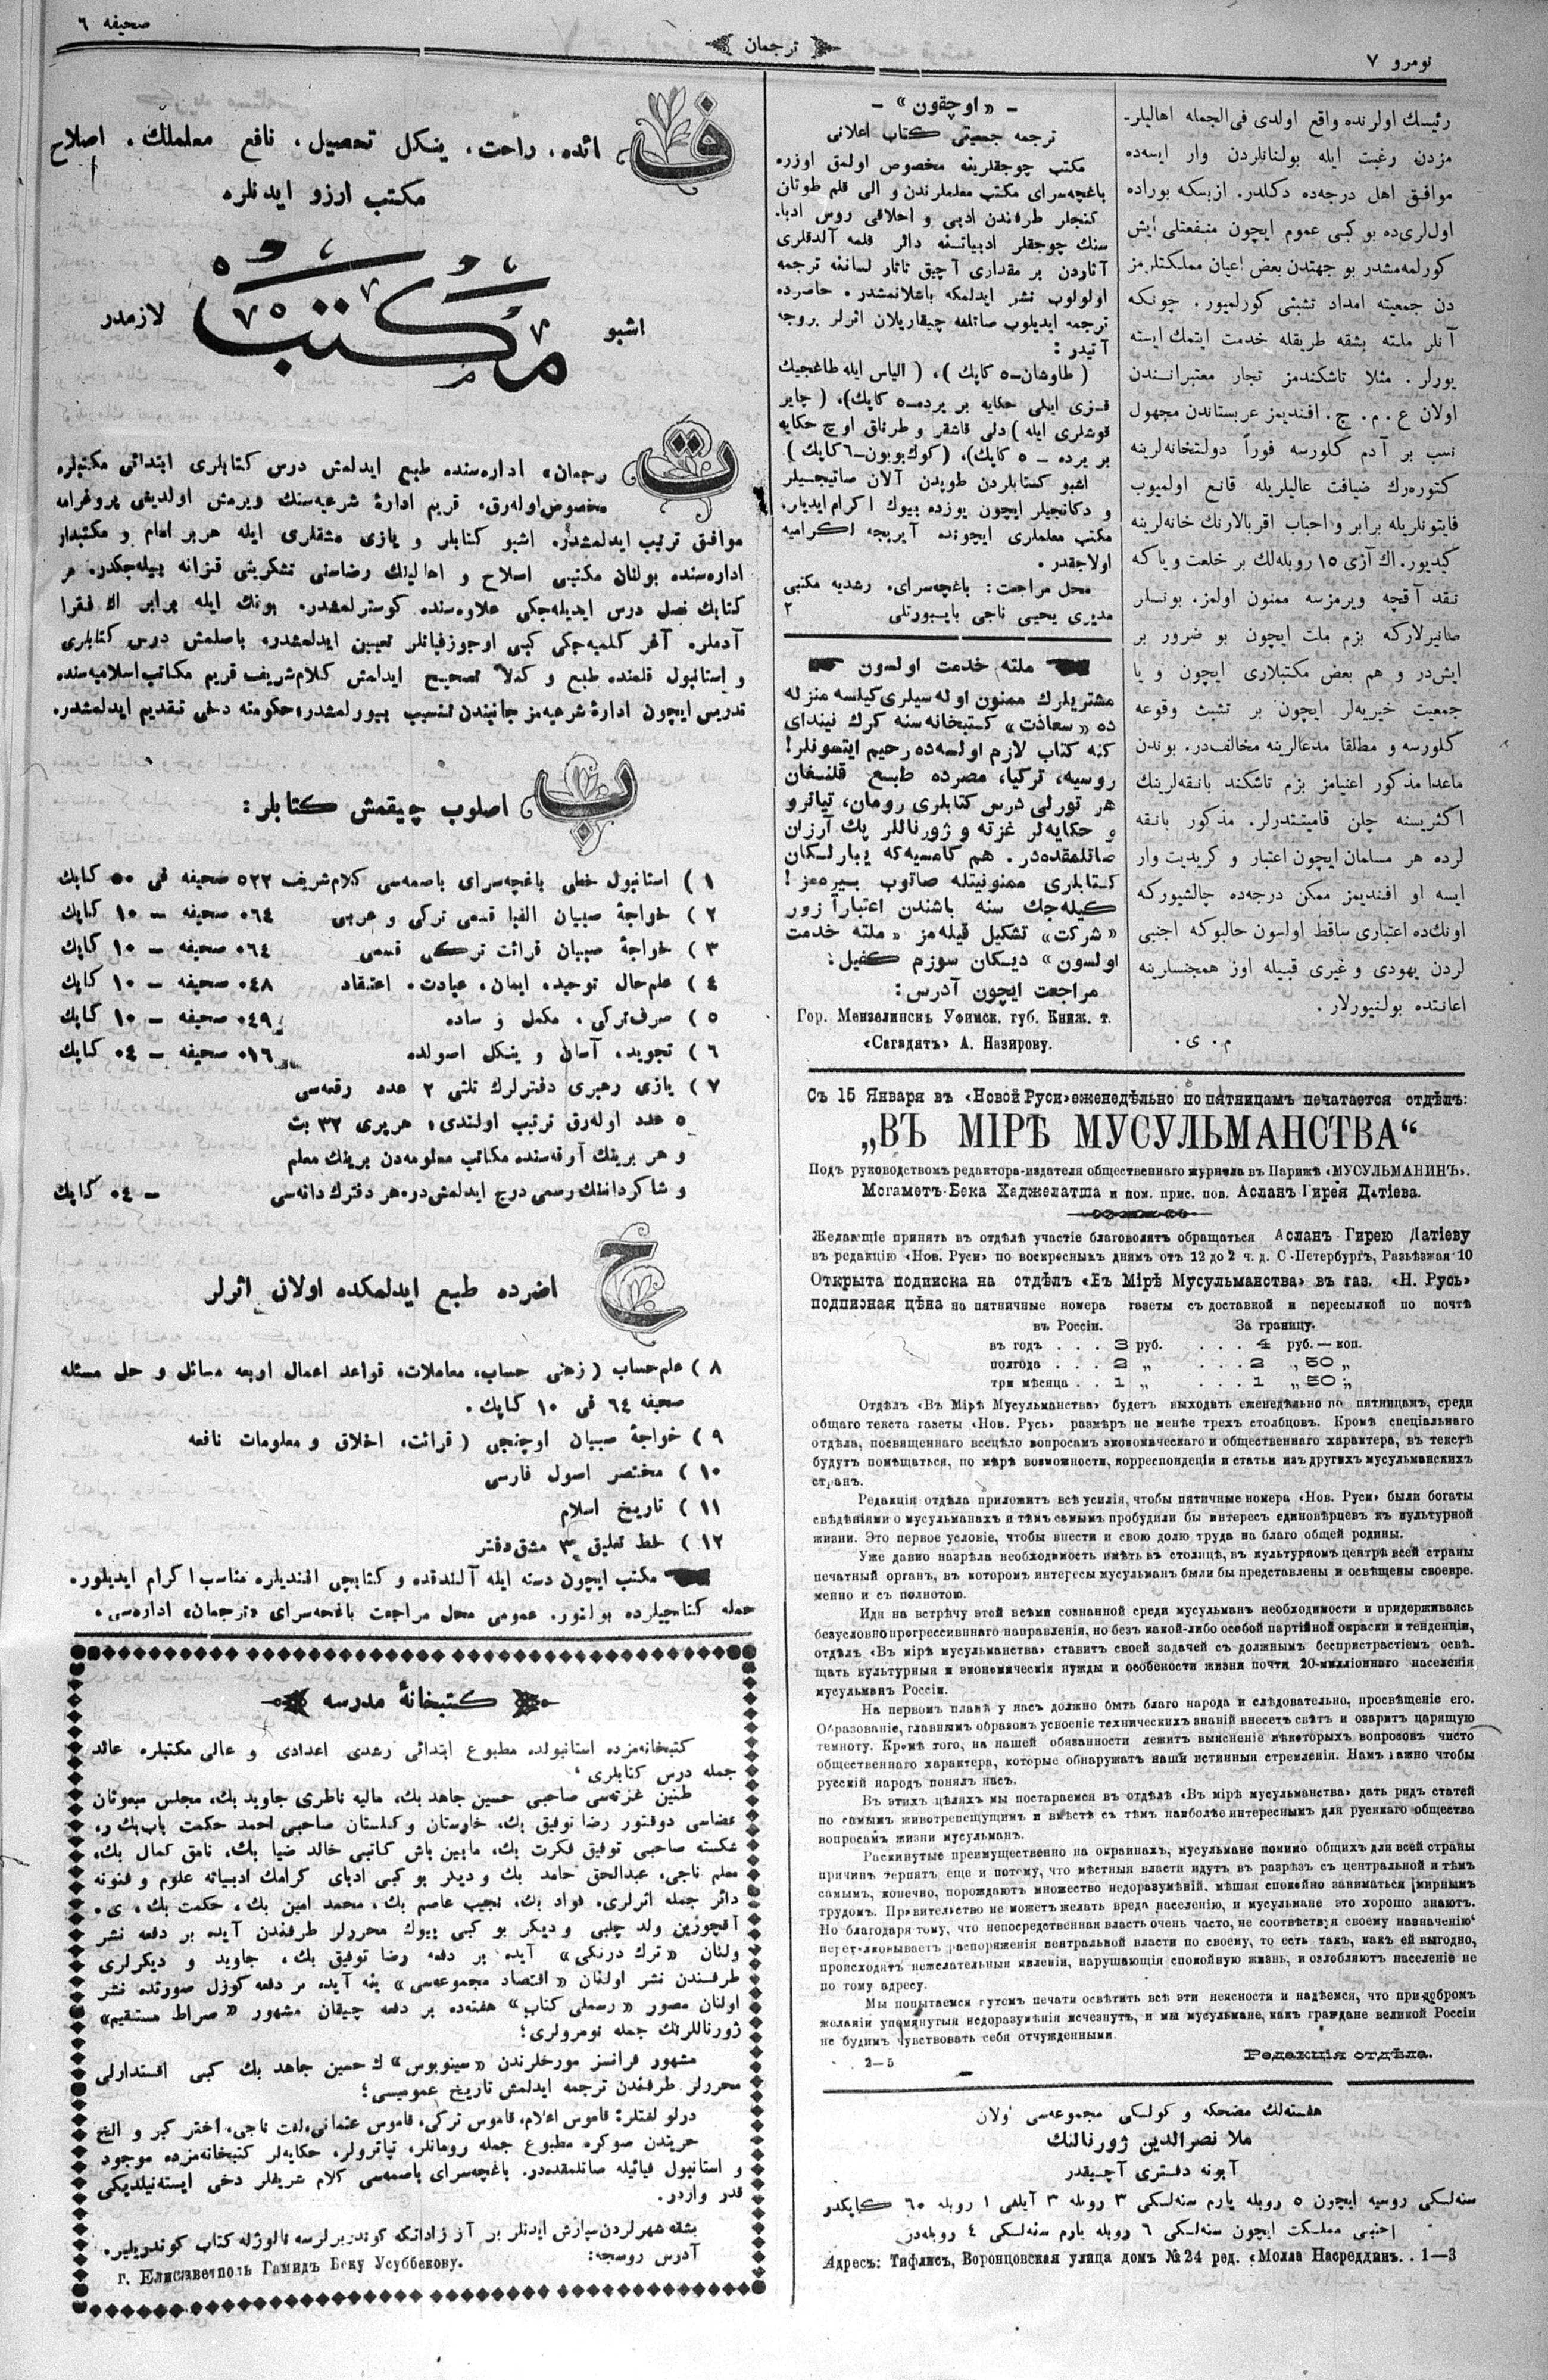 نومرو ٧
ترجمان
صحیفه ٦
رئیسك اولرنده واقع اولدی فی‌الجمله اهالیلر-
مزدن رغبت ایله بولنانلردن وار ایسه‌ده
موافق اهل درجه‌ده دكلدر. ازبسكه بوراده
اول‌لری‌ده بو كبی عموم ایچون منفعتلی ایش
كورلمه‌مشدر بو جهتدن بعض اعیان مملكتلرمز
دن جمعیته امداد تشبثی كورلمیور. چونكه
آنلر ملته بشقه طریقله خدمت ایتمك ایسته
یورلر. مثلا تاشكندمز تجار معتبرانندن
اولان ع. م. ج. افندیمز عربستاندن مجهول
نسب بر آدم كلورسه فوراً دولتخانه‌لرینه
كتوره‌رك ضیافت عالیلریله قانع اولمیوب
فایتونلریله برابر و احباب اقربالارنك خانه‌لرینه
كیدیور. اك آزی ١٥ روبله‌لك بر خلعت و یا كه
نقد آقچه ویرمزسه ممنون اولمز. بونلر
صانیرلاركه بزم ملت ایچون بو ضرور بر
ایش‌در و هم بعض مكتبلاری ایچون و یا
جمعیت خیریه‌لر ایچون بر تشبث وقوعه
كلورسه و مطلقا مدعالرینه مخالف‌در. بوندن
ماعدا مذكور اغنیامز بزم تاشكند بانقه‌لرینك
اكثریسنه چلن قامیتتدرلر. مذكور بانقه
لرده هر مسلمان ایچون اعتبار و كریدیت وار
ایسه او افندیمز ممكن درجه‌ده چالشیوركه
اونك‌ده اعتباری ساقط اولسون حالبوكه اجنبی
لردن یهودی و غیری قبیله اوز همجنسلرینه
اعانتده بولنیورلار.
م. ی.
- «اوچقون» -
ترجمه جمعیتی كتاب اعلانی
مكتب چوجقلرینه مخصوص اولمق اوزره
باغچه‌سرای مكتب معلملرندن و الی قلم طوتان
كنجلر طرفندن ادبی و اخلاقی روس ادبا-
سنك چوجقلر ادبیاتنه دائر قلمه آلدقلری
آثاردن بر مقداری آچیق تاتار لساننه ترجمه
اولولوب نشر ایدلمكه باشلانمشدر. حاضرده
ترجمه ایدیلوب صاتلغه چیقاریلان اثرلر بروجه
آتیدر:
(طاوشان–٥ كاپك)، (الیاس ایله طاغجیك
قزی ایكی حكایه بر یرده–٥ كاپك)، (چایر
قوشلری ایله) دلی قاشقر و طرناق اوچ حكایه
بر یرده – ٥ كاپك)، (كوك‌بوبون–٦ كاپك)
اشبو كتابلردن طوپدن آلان صاتیجیلر
و دكانجیلر ایچون یوزده بیوك اكرام ایدیلر.
مكتب معلملری ایچونده آیریجه اكرامیه
اولاجقدر.
محل مراجعت: باغچه‌سرای. رشدیه مكتبی
مدیری یحیی ناجی بایبورتلی ٢
ملته خدمت اولسون
مشتریلرك ممنون اوله‌سیلری كیلسه منزله
ده «سعادت» كتبخانه‌سنه كرك نیندای
كنه كتاب لازم اولسه‌ده رحیم ایتسونلر!
روسیه، تركیا، مصرده طبع قلنغان
هر تورلی درس كتابلری رومان، تیاترو
و حكایه‌لر غزته و ژورناللر پك آرزان
صاتلمقده‌در. هم كامسیه‌كه یبارلكان
كتابلری ممنونیتله صاتوب بیره‌مز!
كیله‌جك سنه باشندن اعتباراً زور
«شركت» تشكیل قیله‌مز «ملته خدمت
اولسون» دیكان سوزم كفیل:
مراجعت ایچون آدرس:
Гор. Мензелинскъ Уфимск. губ. Книж. т.
«Сагадатъ» А. Назирову.
Съ 15 Января въ «Новой Руси» еженедѣльно по пятницамъ печатается отдѣлъ:
„ВЪ МІРѢ МУСУЛЬМАНСТВА“
Подъ руководствомъ редактора-издателя общественнаго журнала въ Парижѣ «МУСУЛЬМАНИНЪ».
Могаметъ-Бека Хаджелатша и пом. прис. пов. Асланъ-Гирея Датіева.
Желающіе принять въ отдѣлѣ участіе благоволятъ обращаться Асланъ-Гирею Датіеву
въ редакцію «Нов. Руси» по воскреснымъ днямъ отъ 12 до 2 ч. д. С-Петербургъ, Разъѣзжая 10
Открыта подписка на отдѣлъ «Въ Мірѣ Мусульманства» въ газ. «Н. Русь»
подписная цѣна на пятничные номера газеты съ доставкой и пересылкой по почтѣ
въ Россіи. За границу.
въ годъ . . . 3 руб. . . . 4 руб. — коп.
полгода . . . 2 „ . . . 2 „ 50 „
три мѣсяца . . 1 „ . . . 1 „ 50 „
Отдѣлъ «Въ Мірѣ Мусульманства» будетъ выходить еженедѣльно по пятницамъ, среди
общаго текста газеты «Нов. Русь» размѣръ не менѣе трехъ столбцовъ. Кромѣ спеціальнаго
отдѣла, посвященнаго всецѣло вопросамъ экономическаго и общественнаго характера, въ текстѣ
будутъ помѣщаться, по мѣрѣ возможности, корреспонденціи и статьи изъ другихъ мусульманскихъ
странъ.
Редакція отдѣла приложитъ всѣ усилія, чтобы пятичные номера «Нов. Руси» были богаты
свѣдѣніями о мусульманахъ и тѣмъ самымъ пробудили бы интересъ единовѣрцевъ къ культурной
жизни. Это первое условіе, чтобы внести и свою долю труда на благо общей родины.
Уже давно назрѣла необходимость имѣть въ столицѣ, въ культурномъ центрѣ всей страны
печатный органъ, въ которомъ интересы мусульманъ были бы представлены и освѣщены своевре-
менно и съ полнотою.
Идя на встрѣчу этой всѣми сознанной среди мусульманъ необходимости и придерживаясь
безусловно прогрессивннаго направленія, но безъ какой-либо особой партійной окраски и тенденціи,
отдѣлъ «Въ мірѣ мусульманства» ставитъ своей задачей съ должнымъ беспристрастіемъ освѣ-
щать культурныя и экономическія нужды и особености жизни почти 20-милліоннаго населенія
мусульманъ Россіи.
На первомъ планѣ у насъ должно быть благо народа и слѣдовательно, просвѣщеніе его.
Образованіе, главнымъ образомъ усвоеніе техническихъ знаній внесетъ свѣтъ и озаритъ царящую
темноту. Кромѣ того, на нашей обязанности лежитъ выясненіе нѣкоторыхъ вопросовъ чисто
общественнаго характера, которые обнаружатъ наши истинныя стремленія. Намъ важно чтобы
русскій народъ понялъ насъ.
Въ этихъ цѣляхъ мы постараемся въ отдѣлѣ «Въ мірѣ мусульманства» дать рядъ статей
по самымъ животрепещущимъ и вмѣстѣ съ тѣмъ наиболѣе интереснымъ для русскаго общества
вопросамъ жизни мусульманъ.
Раскинутые преимущественно на окраинахъ, мусульмане помимо общихъ для всей страны
причинъ терпятъ еще и потому, что мѣстныя власти идутъ въ разрѣзъ съ центральной и тѣмъ
самымъ, конечно, порождаютъ множество недоразумѣній, мѣшая спокойно заниматься мирнымъ
трудомъ. Правительство не можетъ желать вреда населенію, и мусульмане это хорошо знаютъ.
Но благодаря тому, что непосредственная власть очень часто, не соотвѣтствуя своему назначенію
перетолковываетъ распоряженія центральной власти по своему, то есть такъ, какъ ей выгодно,
происходятъ нежелательныя явленія, нарушающія спокойную жизнь, и озлобляютъ населеніе не
по тому адресу.
Мы попытаемся путемъ печати освѣтить всѣ эти неясности и надѣемся, что при добромъ
желаніи упомянутыя недоразумѣнія исчезнутъ, и мы мусульмане, какъ граждане великой Россіи
не будимъ чувствовать себя отчужденными.
Редакція отдѣла.
2—5
هفته‌لك مضحكه و كولكی مجموعه‌سی اولان
ملا نصرالدین ژورنالنك
آبونه دفتری آچیقدر
سنه‌لكی روسیه ایچون ٥ روبله یارم سنه‌لكی ٣ روبله ٣ آیلغی ١ روبله ٦٠ كاپكدر
اجنبی مملكت ایچون سنه‌لكی ٦ روبله یارم سنه‌لكی ٤ روبله‌در
Адресъ: Тифлисъ, Воронцовская улица домъ №24 ред. «Молла Насреддинъ. . 1—3
فائده، راحت، ینكل تحصیل، نافع معلملك، اصلاح
مكتب ارزو ایدنلره
اشبو
مكتب
لازمدر
ترجمان» اداره‌سنده طبع ایدلمش درس كتابلری ابتدائی مكتبلره
مخصوص اوله‌رق، قریم ادارهٔ شرعیه‌سنك ویرمش اولدیغی پروغرامه
موافق ترتیب ایدلمشدر. اشبو كتابلر و یازی مشقلری ایله هر بر امام و مكتبدار
اداره‌سنده بولنان مكتبی اصلاح و اهالینك رضاسنی تشكرینی قزانه بیله‌جكدر. هر
كتابك نصل درس ایدیله‌جكی علاوه‌سنده كوسترلمشدر. بونك ایله برابر اك فقرا
آدملره آغر كلمیه‌جكی كبی اوجوز فیاتلر تعیین ایدلمشدر. باصلمش درس كتابلری
و استانبول قلمنده طبع و كاملاً تصحیح ایدلمش كلام‌شریف قریم مكاتب اسلامیه‌سنده
تدریس ایچون ادارهٔ شرعیه‌مز جانبندن تنسیب بیورلمشدر؛ حكومته دخی تقدیم ایدلمشدر.
باصلوب چیقمش كتابلر:
١) استانبول خطی باغچه‌سرای باصمه‌سی كلام‌شریف ٥٢٢ صحیفه فی ٥٠ كاپك
٢) خواجهٔ صبیان الفبا قسمی تركی و عربی ٠٦٤ صحیفه – ١٠ كاپك
٣) خواجهٔ صبیان قرائت تركی قسمی ٠٦٤ صحیفه – ١٠ كاپك
٤) علم‌حال توحید، ایمان، عبادت، اعتقاد ٠٤٨ صحیفه – ١٠ كاپك
٥) صرف‌تركی، مكمل و ساده ٠٤٩ صحیفه – ١٠ كاپك
٦) تجوید، آسان و ینكل اصولده ٠١٦ صحیفه – ٠٤ كاپك
٧) یازی رهبری دفترلرك ثلثی ٢ عدد رقعه‌سی
٥ عدد اوله‌رق ترتیب اولندی؛ هر بری ٣٢ بت
و هر برینك آرقه‌سنده مكاتب معلومه‌دن برینك معلم
و شاكرداننك رسمی درج ایدلمش‌در. هر دفترك دانه‌سی – ٠٤ كاپك
حاضرده طبع ایدلمكده اولان اثرلر
٨) علم‌حساب (زهنی حساب، معاملات، قواعد اعمال اربعه مسائل و حل مسئله
صحیفه ٦٤ فی ١٠ كاپك.
٩) خواجهٔ صبیان اوچنجی (قرائت، اخلاق و معلومات نافعه
١٠) مختصر اصول فارسی
١١) تاریخ اسلام
١٢) خط تعلیق ٣ مشق‌دفتر
مكتب ایچون دسته ایله آلندقده و كتابچی افندیلره مناسب اكرام ایدیلور.
جمله كتابجیلرده بولنور. عمومی محل مراجعت باغچه‌سرای «ترجمان» اداره‌سی.
كتبخانهٔ مدرسه
كتبخانه‌مزده استانبولده مطبوع ابتدائی رشدی اعدادی و عالی مكتبلره عائد
جمله درس كتابلری،
طنین غزته‌سی صاحبی حسین جاهد بك، مالیه ناظری جاوید بك، مجلس مبعوثان
عضاسی دوقتور رضا توفیق بك، خارستان و كلستان صاحبی احمد حكمت
شكسته صاحبی توفیق فكرت بك، مابین باش كاتبی خالد ضیا بك، نامق كمال بك،
معلم ناجی، عبدالحق حامد بك و دیكر بو كبی ادبای كرامك ادبیاته علوم و فنونه
دائر جمله اثرلری. فواد بك، نجیب عاصم بك، محمد امین بك، حكمت بك، ی.
آقچورین ولد چلبی و دیكر بو كبی بیوك محررلر طرفندن آیده بر دفعه نشر
ولنان «ترك درنكی» آیده بر دفعه رضا توفیق بك، جاوید و دیكرلری
طرفندن نشر اولنان «اقتصاد مجموعه‌سی» ینه آیده بر دفعه كوزل صورتده نشر
اولنان مصور «رسملی كتاب» هفته‌ده بر دفعه چیقان مشهور «صراط مستقیم»
ژورناللرنك جمله نومرولری؛
مشهور فرانسز مورخلرندن «سینوبوس» ك حسین جاهد بك كبی اقتدارلی
محررلر طرفندن ترجمه ایدلمش تاریخ عمومیسی؛
درلو لغتلر: قاموس اعلام، قاموس تركی، قاموس عثمانی، لغت ناجی، اختر كبر و الخ
حریتدن صوكره مطبوع جمله رومانلر، تیاترولر، حكایه‌لر كتبخانه‌مزده موجود
و استانبول فیائیله صاتلمقده‌در. باغچه‌سرای باصمه‌سی كلام شریفلر دخی ایسته‌نیلدیكی
قدر واردر.
بشقه شهرلردن سپارش ایدنلر بر آز زادانكه كوندیرلرسه نالوژله كتاب كوندریلیر.
آدرس روسجه:
г. Елисаветполь Гамидъ Беку Усуббекову.